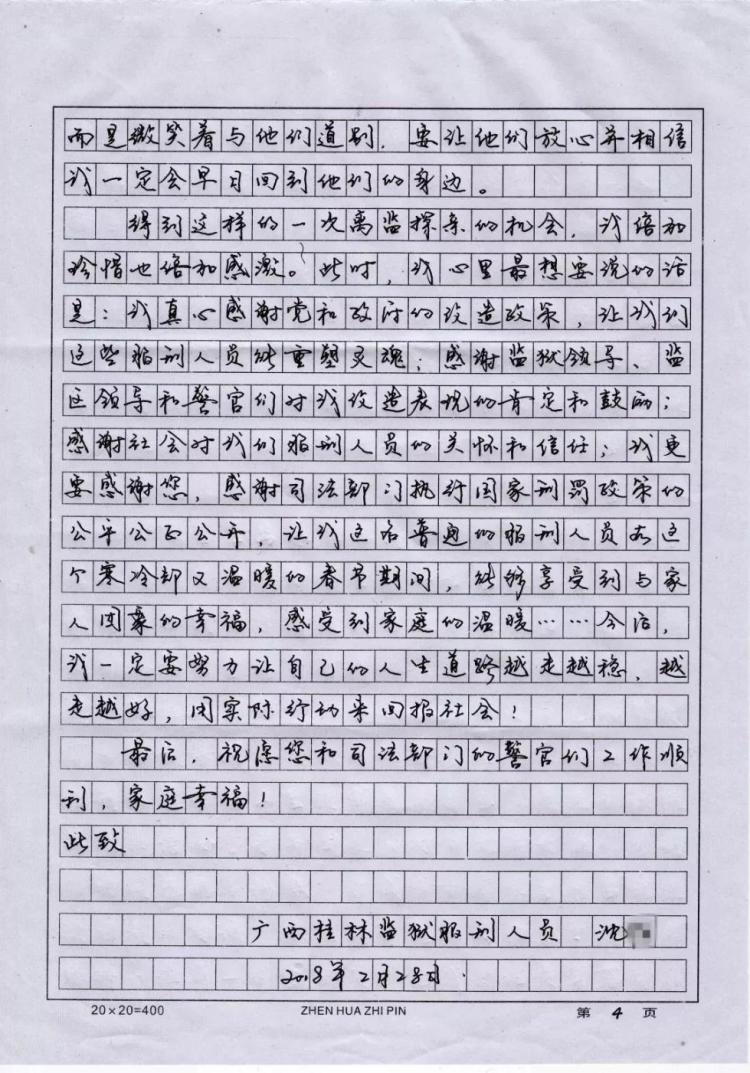 而是微笑着与他们道别，要让他们放心并相信
我一定会早日回到他们的身边。
得到这样的一次离监探亲的机会，我倍加
珍惜也倍加感激。此时，我心里最想要说的话
是：我真心感谢党和政府的改造政策，让我们
这些服刑人员能重塑灵魂；感谢监狱领导、监
区领导和警官们对我改造表现的肯定和鼓励；
感谢社会对我们服刑人员的关怀和信任；我更
要感谢您，感谢司法部门执行国家刑罚政策的
公平公正公开，让我这名普通的服刑人员在这
个寒冷却又温暖的春节期间，能够享受到与家
人团聚的幸福，感受到家庭的温暖……今后，
我一定要努力让自己的人生道路越走越稳，越
走越好，用实际行动来回报社会！
最后，祝愿您和司法部门的警官们工作顺
利，家庭幸福！
此致
广西桂林监狱服刑人员 沈
2018年2月28日.
20×20=400 ZHEN HUA ZHI PIN 第 4 页